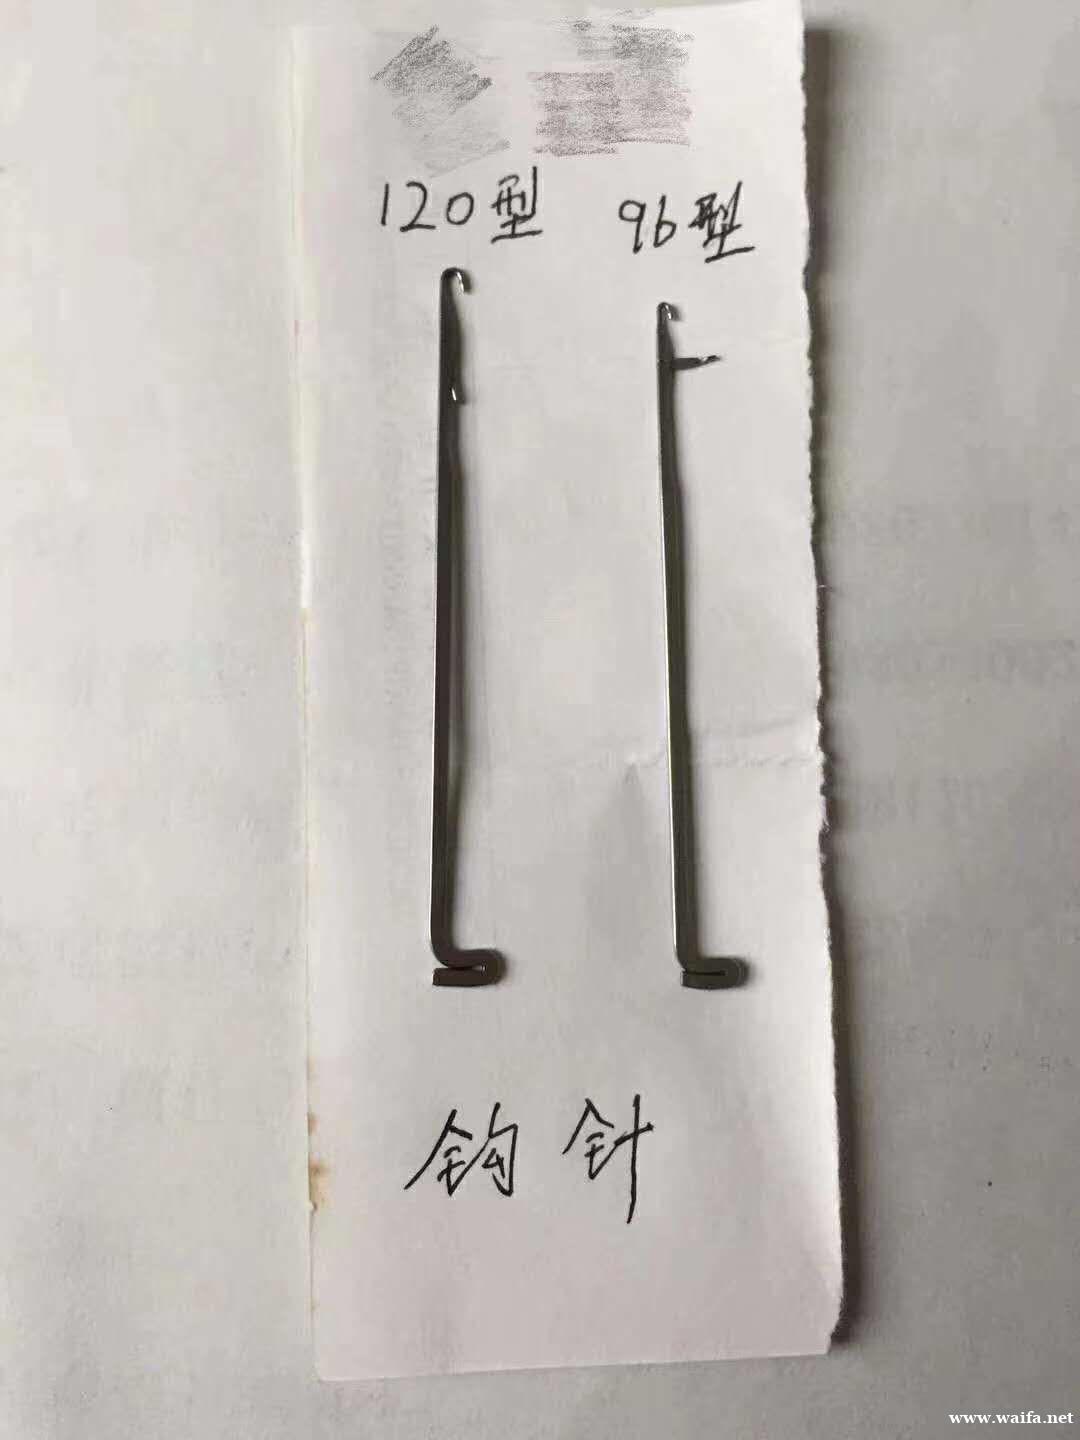 120型 96型
钩针
www.waifa.net